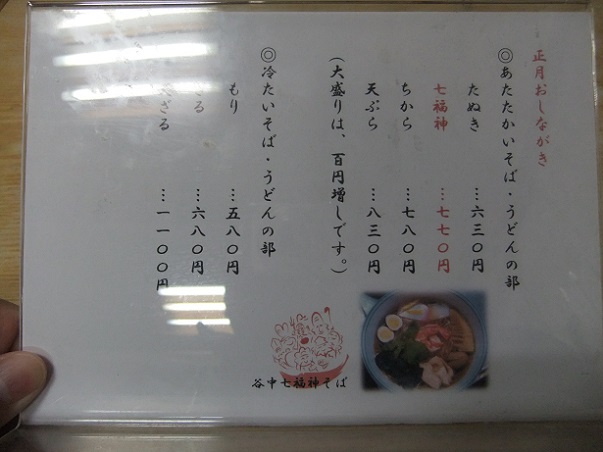 正月おしながき
◎あたたかいそば・うどんの部
たぬき …六三〇円
七福神 …七七〇円
ちから …七八〇円
天ぷら …八三〇円
(大盛りは、百円増しです。)
◎冷たいそば・うどんの部
もり …五八〇円
ざる …六八〇円
ざる …一一〇〇円
谷中七福神そば